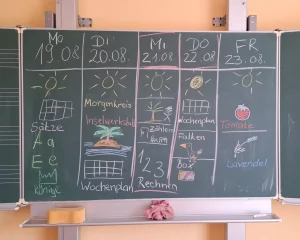 Mo
19.08.
Di
20.08.
Mi
21.08
DO
22.08
FR
23.08.
Sätze
A
a
E
e
Könige
Morgenkreis
Inselwerkstatt
Wochenplan
Zählen
123
Rechnen
Wochenplan
Falken
Box
Tomate
Lavendel